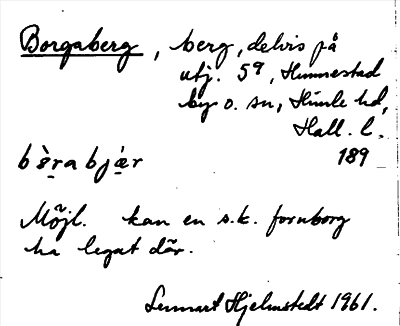 Borgaberg, berg, delvis på
utj. 5⁹, Hunnestad
by o. sn, Himle hd,
Hall. l.
189
Möjl. kan en s.k. fornborg
ha legat där.
Lennart Hjelmstedt 1961.